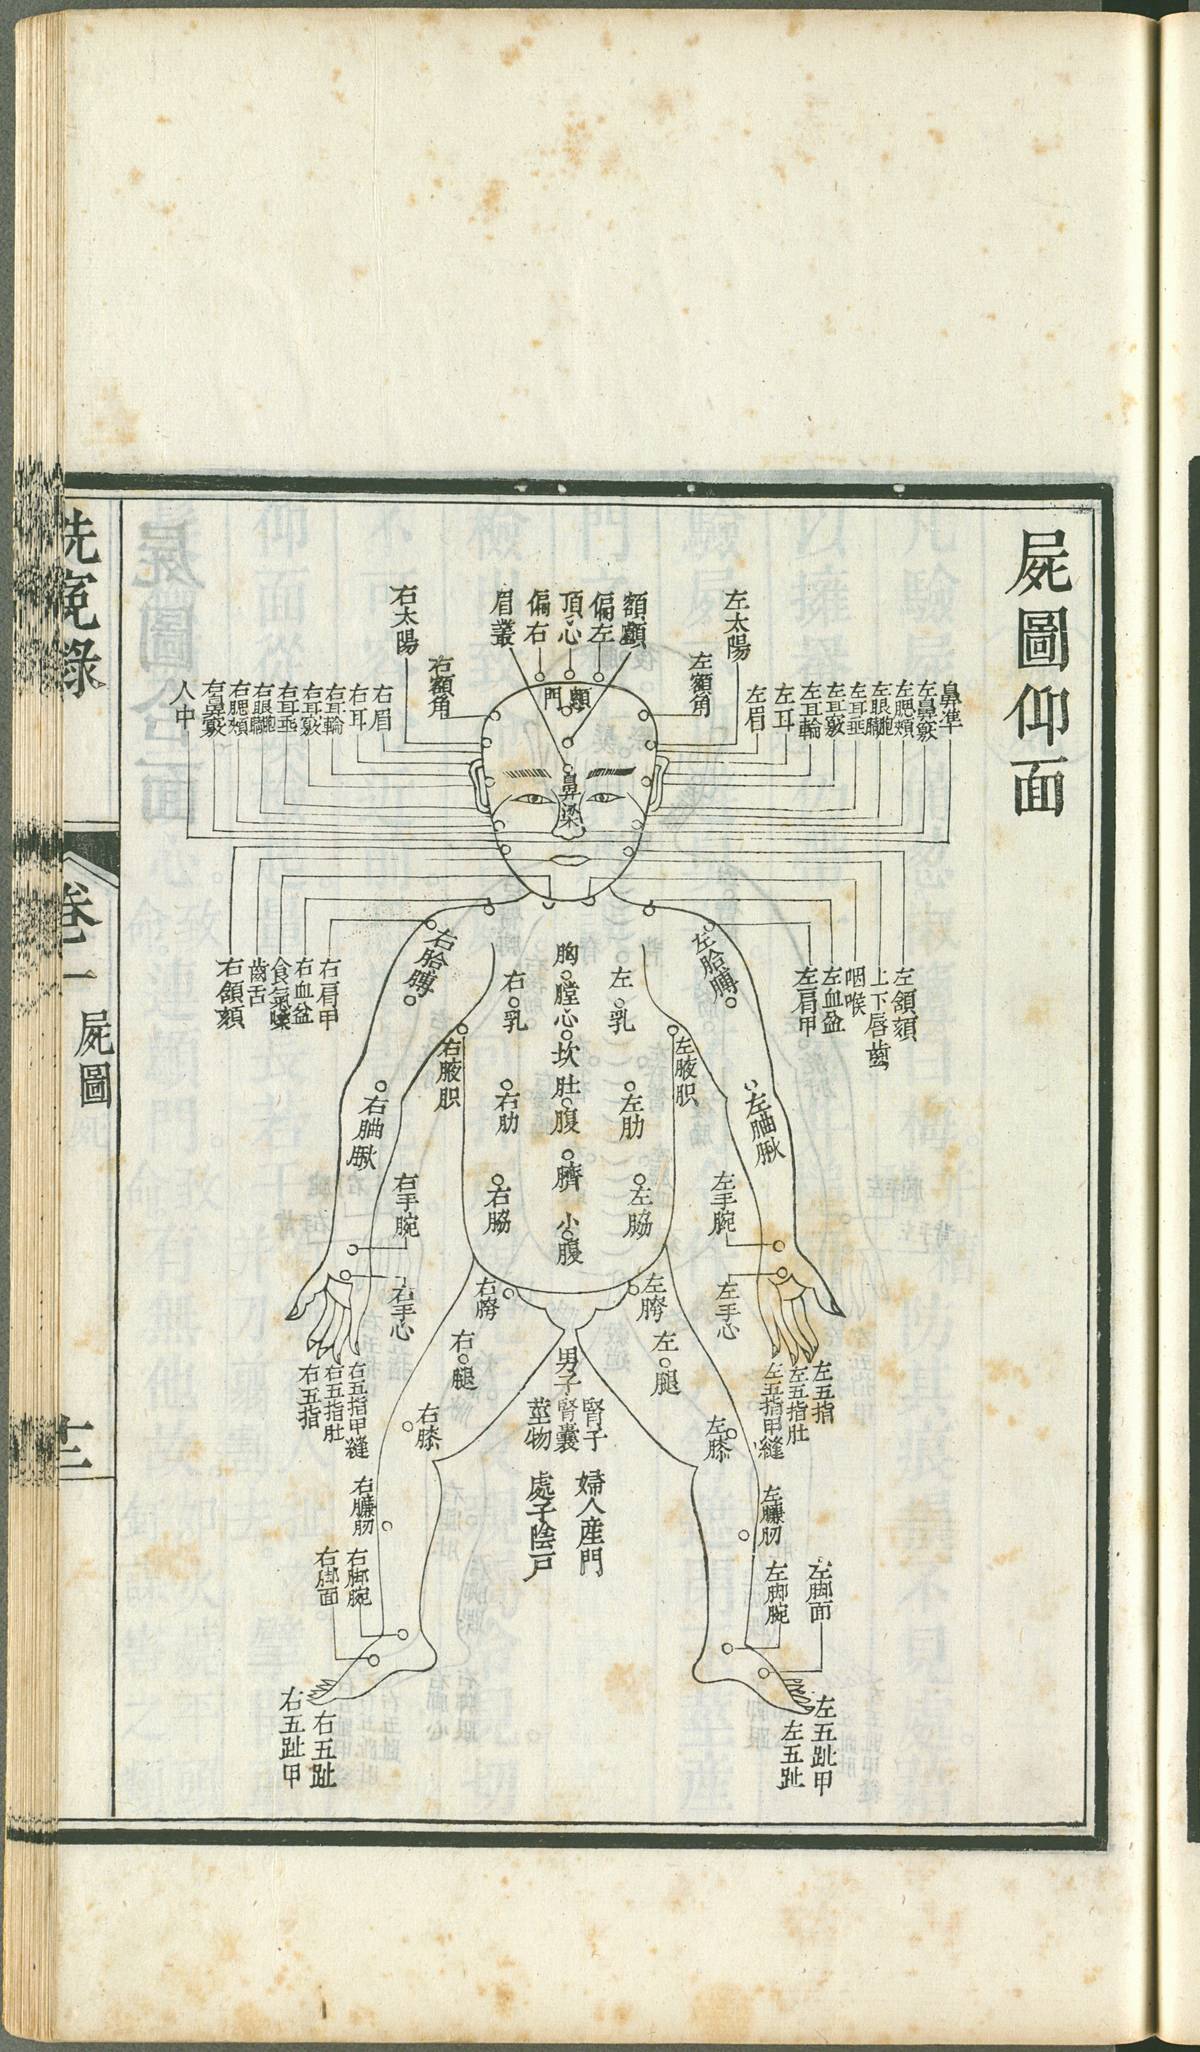 屍圖仰面
左太陽
額顱
偏左
頂心
偏右
眉叢
右太陽
左額角
右額角
顖門
鼻準
左鼻竅
左腮頰
左眼胞
左耳垂
左耳竅
左耳輪
左耳
左眉
右眉
右耳
右耳輪
右耳竅
右耳垂
右眼胞
右腮頰
右鼻竅
人中
鼻梁
左頷頦
上下唇齒
咽喉
左血盆
左肩甲
右肩甲
右血盆
食氣嗓
齒舌
右頷頦
左胳膊
右胳膊
胸膛
心坎
肚腹
臍
小腹
左乳
右乳
左腋胑
右腋胑
左肋
右肋
左脇
右脇
左䏰䐐
右䏰䐐
左手腕
右手腕
左手心
右手心
左五指
左五指肚
左五指甲縫
右五指甲縫
右五指肚
右五指
左胯
右胯
左腿
右腿
男子
腎子
腎囊
莖物
婦人產門
處子陰戸
左膝
右膝
左臁肕
右臁肕
左脚面
左脚腕
右脚腕
右脚面
左五趾甲
左五趾
右五趾
右五趾甲
洗寃錄
卷一
屍圖